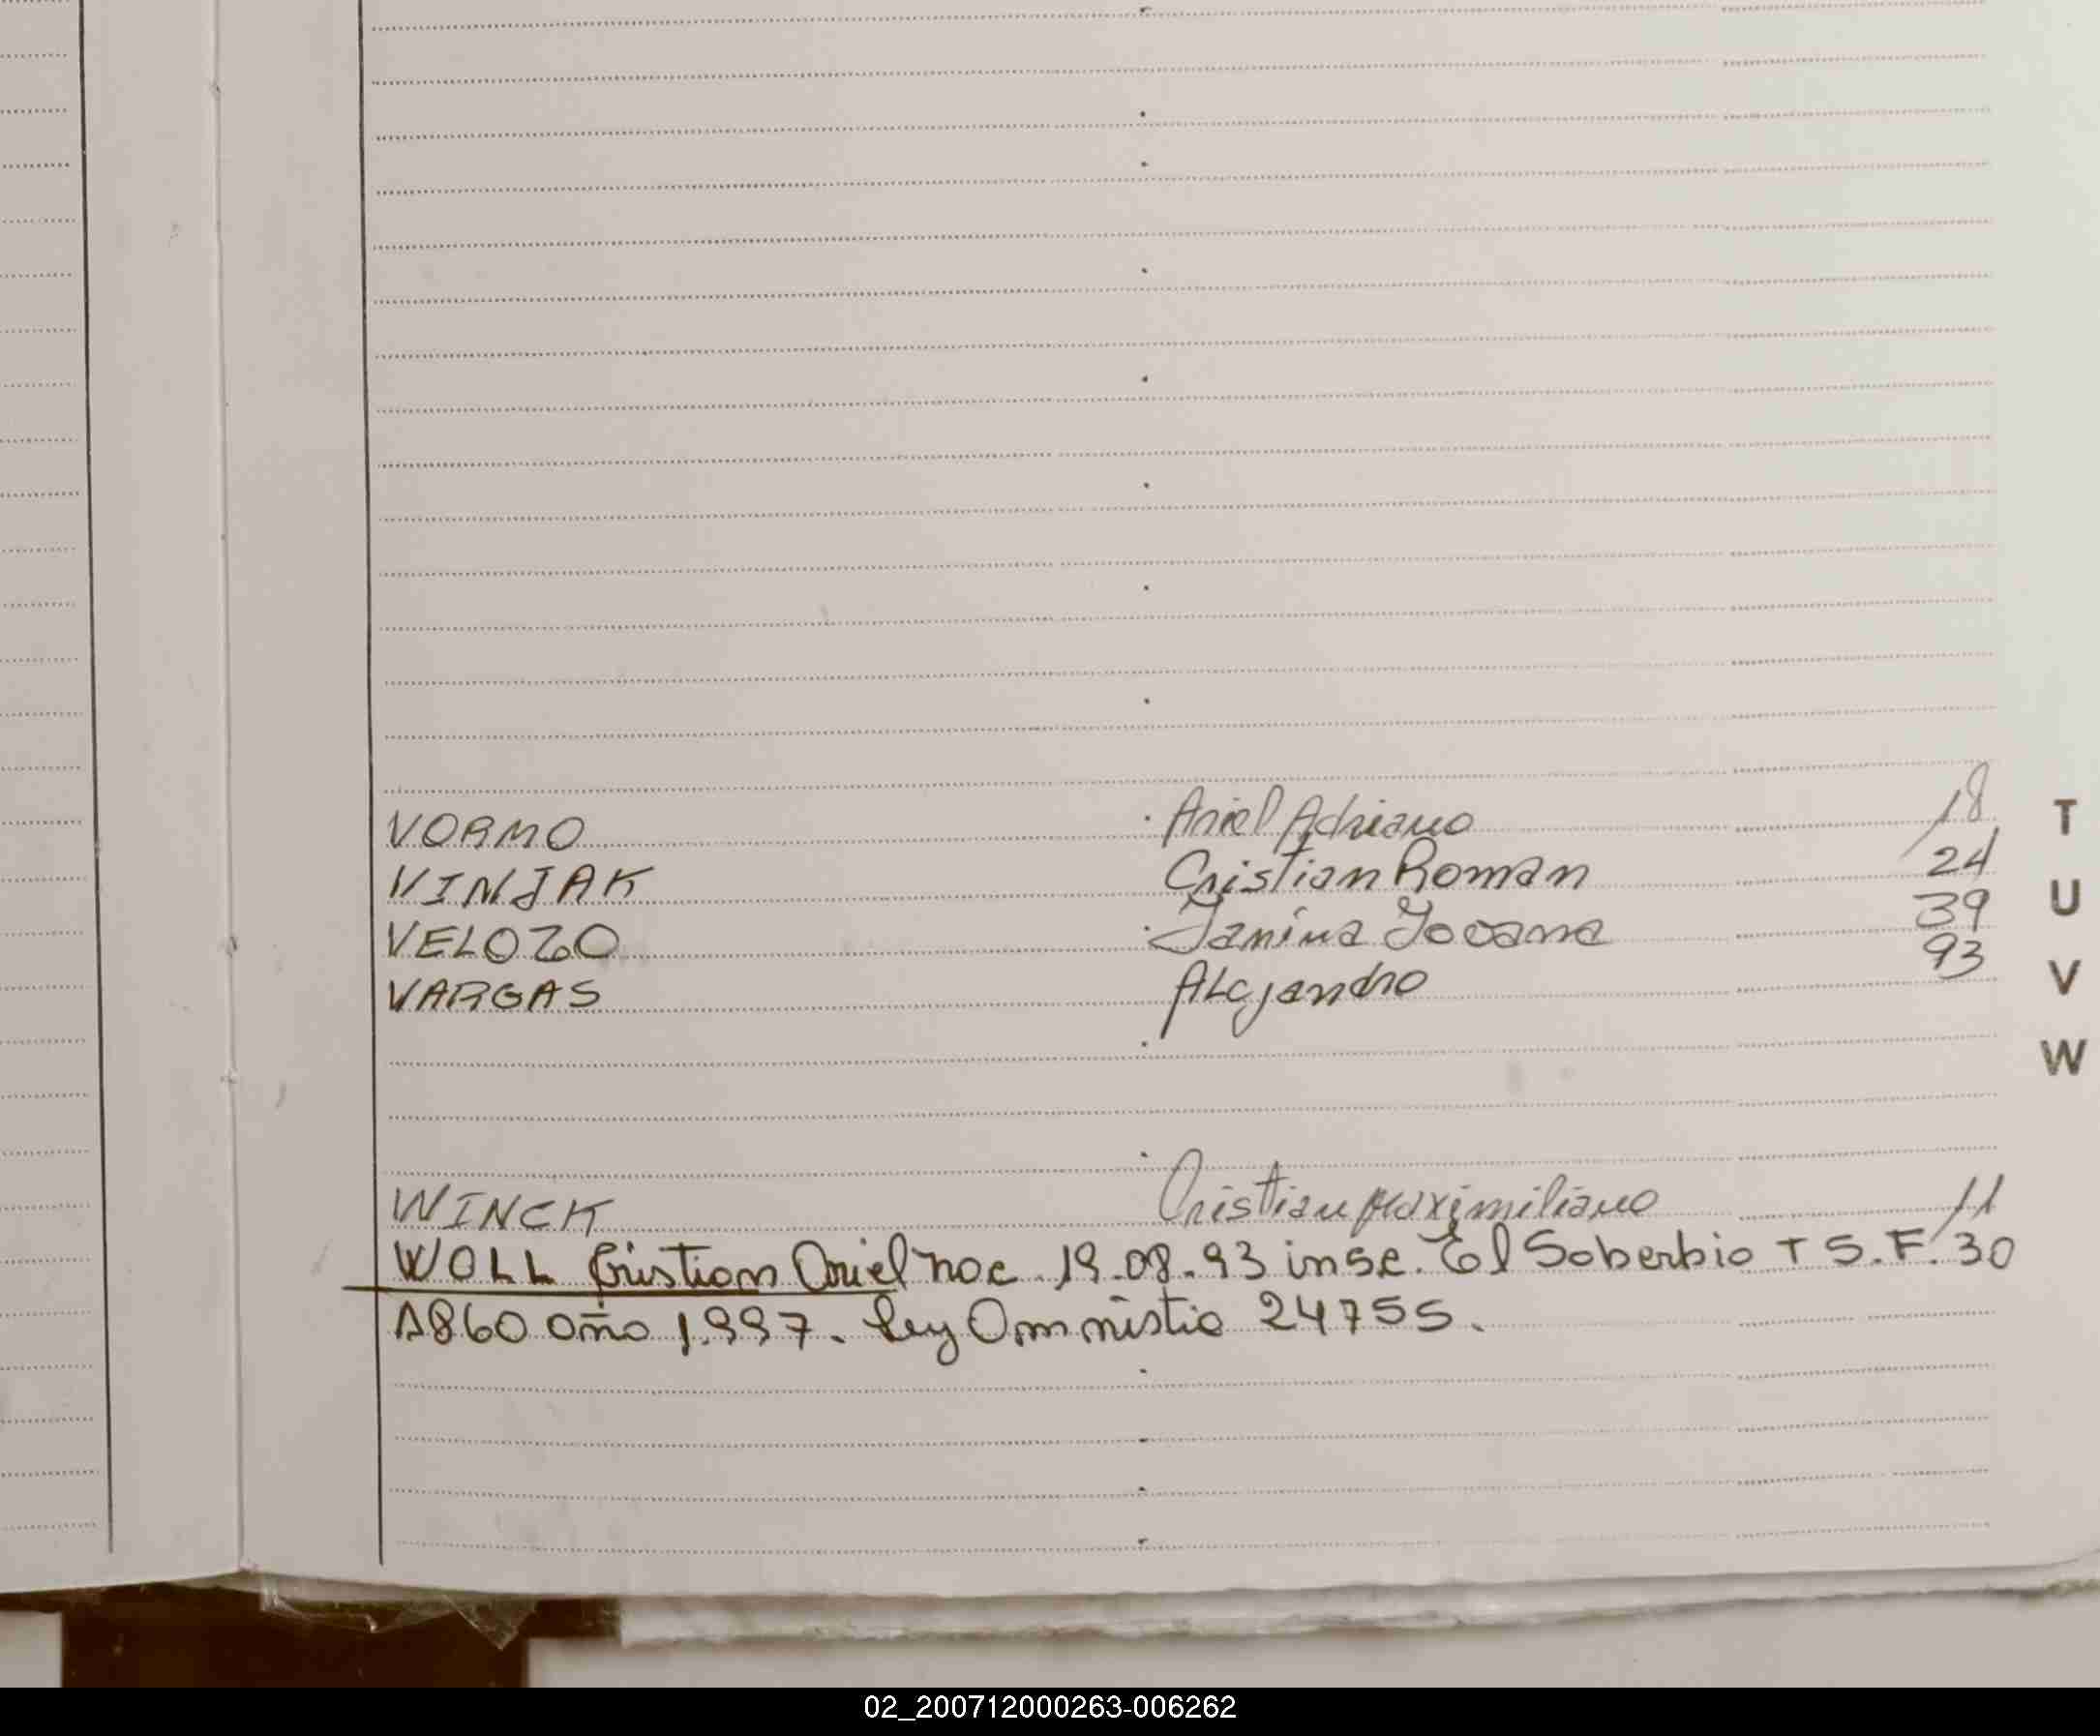 VORMO Ariel Adriano 18
VINJAK Cristian Roman 24
VELOZO Janina Jovana 39
VARGAS Alejandro 93
T
U
V
W
WINCK Cristian Maximiliano 11
WOLL Cristian Ariel nac. 19.08.93 insc. El Soberbio T S.F. 30
A860 año 1.997. Ley Amnistia 24755.
02_200712000263-006262